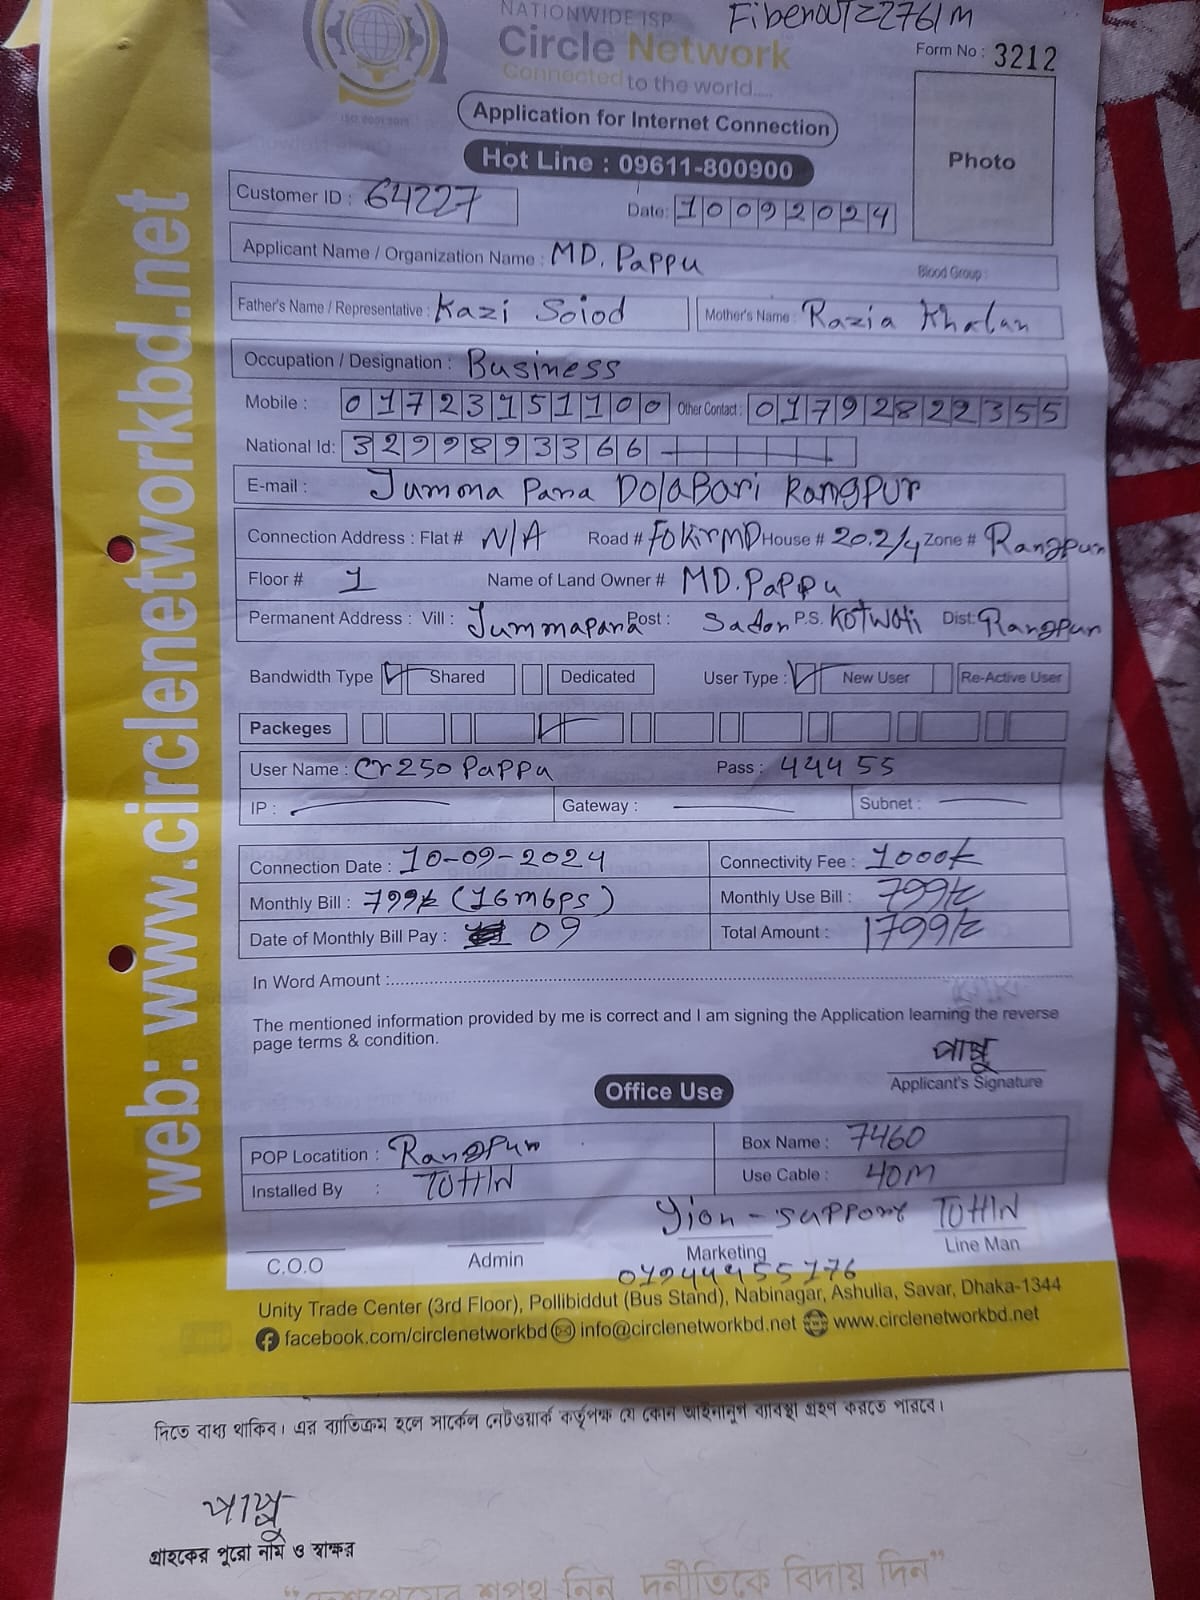 Fiberout=2761m
NATIONWIDE ISP
Circle Network
Form No : 3212
Connected to the world.....
ISO 9001:2015
Application for Internet Connection
Photo
Hot Line : 09611-800900
Customer ID : 64227
Date: 10092024
Applicant Name / Organization Name : MD. Pappu
Blood Group :
Father's Name / Representative : Kazi Soiod Mother's Name : Razia Khatan
Occupation / Designation : Business
Mobile : 01723151100 Other Contact : 01792822355
National Id: 3299893366
E-mail : Jumma Para DolaBari Rangpur
Connection Address : Flat # N/A Road # FokirMD House # 20.2/4 Zone # Rangpur
Floor # 1 Name of Land Owner # MD. Pappu
Permanent Address : Vill : Jummapara Post : Sador P.S. Kotwali Dist: Rangpur
Bandwidth Type Shared Dedicated User Type : New User Re-Active User
Packeges
User Name : Cr250 Pappu Pass : 44455
IP : Gateway : Subnet :
Connection Date : 10-09-2024 Connectivity Fee : 1000tk
Monthly Bill : 799tk (16mbps) Monthly Use Bill : 799tk
Date of Monthly Bill Pay : 09 Total Amount : 1799tk
In Word Amount :
The mentioned information provided by me is correct and I am signing the Application learning the reverse
page terms & condition.
পাপ্পু
Applicant's Signature
Office Use
POP Locatition : Rangpur Box Name : 7460
Installed By : TOHIN Use Cable : 40M
support TOHIN
C.O.O Admin Marketing Line Man
01944455176
Unity Trade Center (3rd Floor), Pollibiddut (Bus Stand), Nabinagar, Ashulia, Savar, Dhaka-1344
facebook.com/circlenetworkbd info@circlenetworkbd.net www.circlenetworkbd.net
web: www.circlenetworkbd.net
দিতে বাধ্য থাকিব। এর ব্যতিক্রম হলে সার্কেল নেটওয়ার্ক কর্তৃপক্ষ যে কোন আইনানুগ ব্যাবস্থা গ্রহণ করতে পারবে।
পাপ্পু
গ্রাহকের পুরো নাম ও স্বাক্ষর
শপথ নিন দুর্নীতিকে বিদায় দিন”